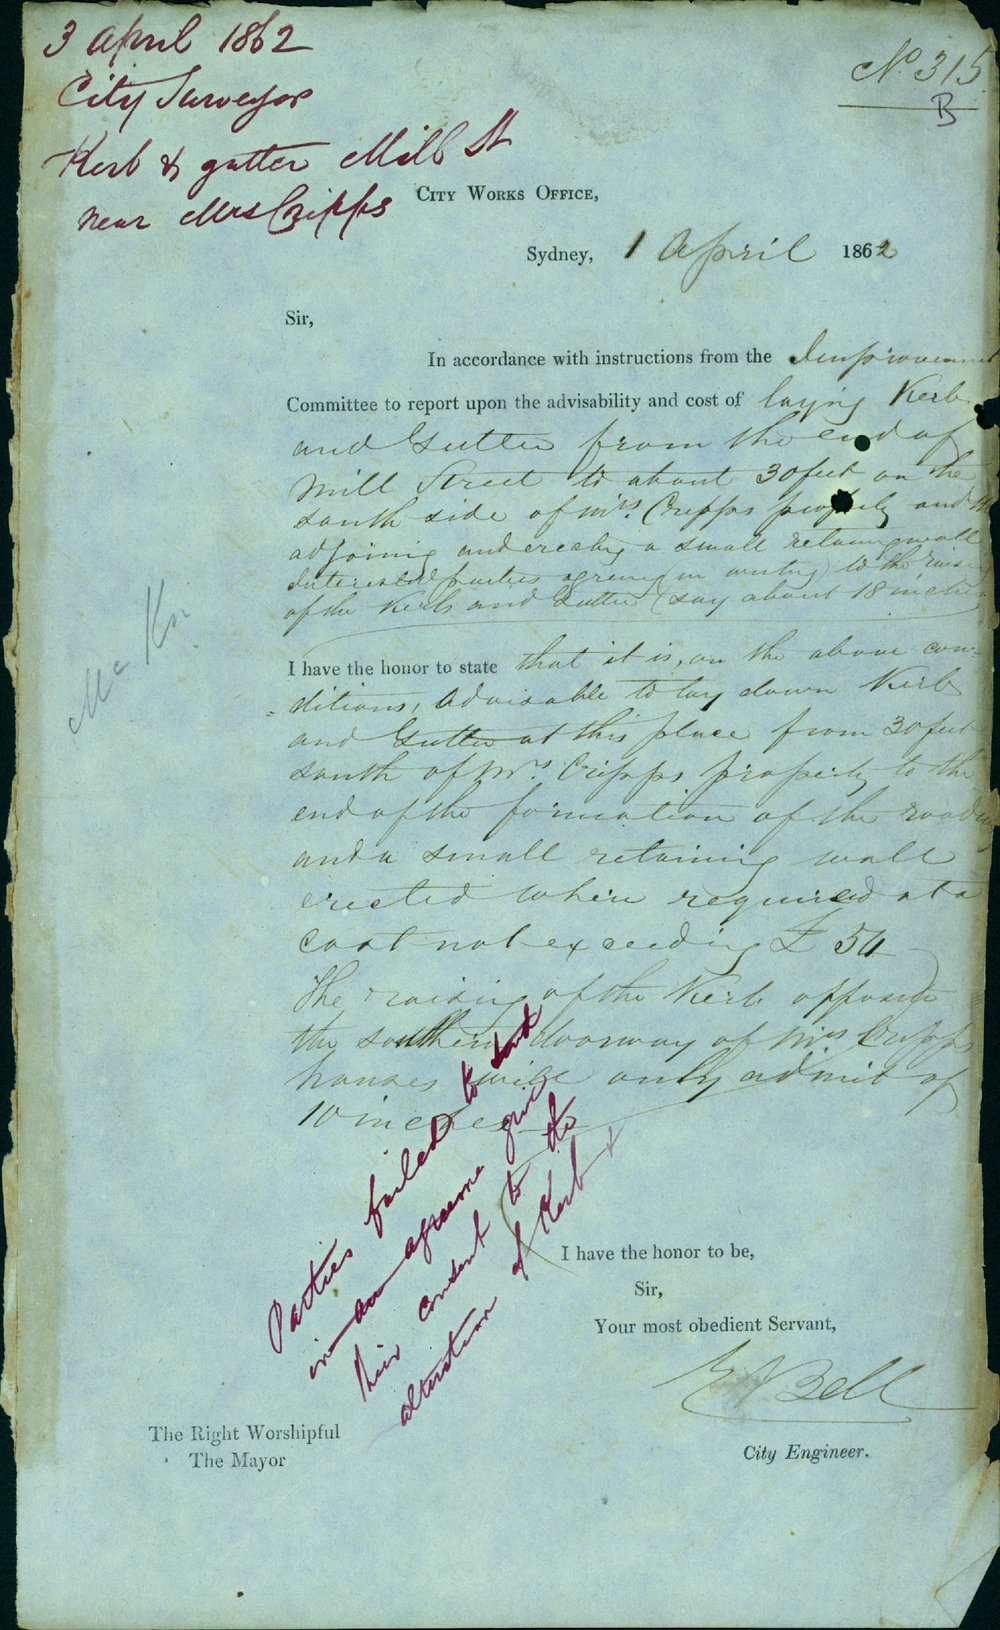 3 April 1862
City Surveyor
Kerb & gutter Mill St
near Mrs Cripps
No. 315
B
CITY WORKS OFFICE,
Sydney, 1 April 1862
Sir,
In accordance with instructions from the Improvement
Committee to report upon the advisability and cost of laying Kerb
and Gutter from the end of
Mill Street to about 30 feet on the
south side of Mrs. Cripps property and
adjoining and erecting a small retaining wall
Interested parties agreeing (in writing) to the raising
of the Kerb and Gutter (say about 18 inches
I have the honor to state that it is, on the above con-
ditions, advisable to lay down Kerb
and Gutter at this place from 30 feet
south of Mrs. Cripps property to the
end of the formation of the roadway
and a small retaining wall
erected where required at a
cost not exceeding £ 50
The raising of the Kerb opposite
the southern doorway of Mrs Cripps
houses will only admit of
10 inches
Parties failed to send
in an agreeme give
their consent to the
alteration of Kerb &
Mc Kn
I have the honor to be,
Sir,
Your most obedient Servant,
E Bell
City Engineer.
The Right Worshipful
The Mayor